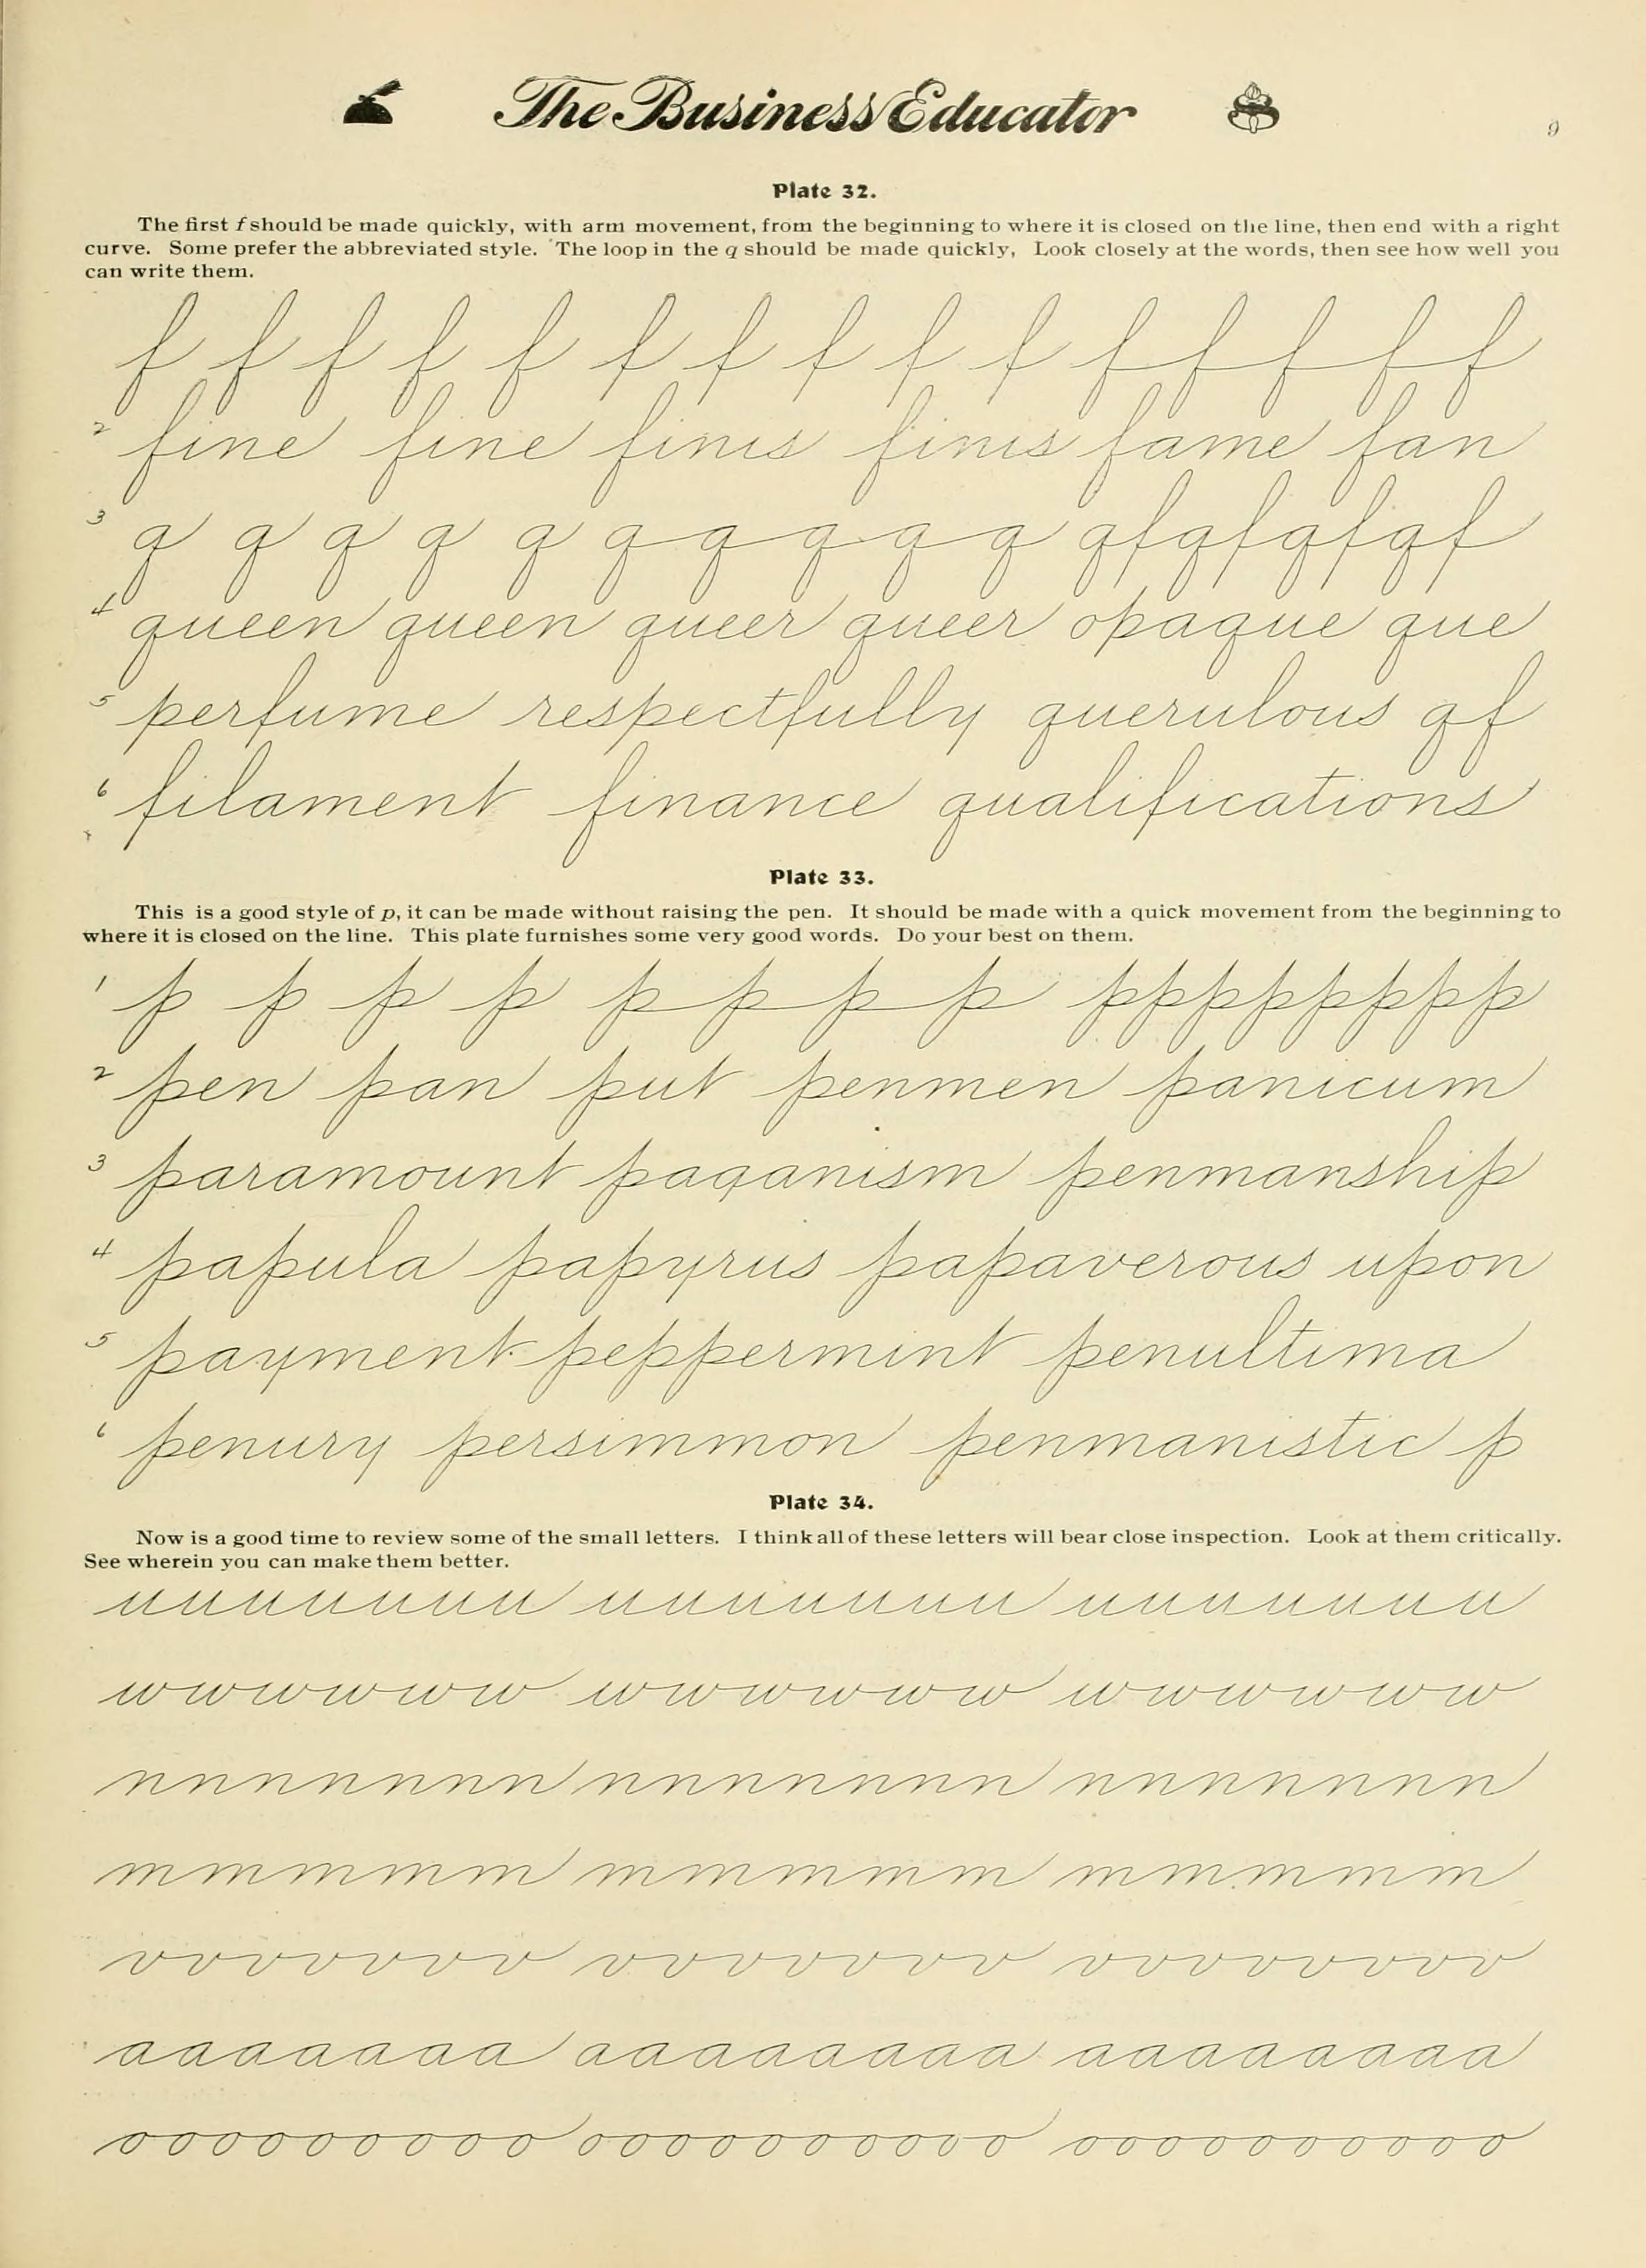 The Business Educator
9
Plate 32.
The first f should be made quickly, with arm movement, from the beginning to where it is closed on the line, then end with a right
curve. Some prefer the abbreviated style. The loop in the q should be made quickly, Look closely at the words, then see how well you
can write them.
f f f f f f f f f f f f f f f
2 fine fine finis finis fame fan
3 q q q q q q q q q q qfqfqfqf
4 queen queen queer queer opaque que
5 perfume respectfully querulous qf
6 filament finance qualifications
Plate 33.
This is a good style of p, it can be made without raising the pen. It should be made with a quick movement from the beginning to
where it is closed on the line. This plate furnishes some very good words. Do your best on them.
1 p p p p p p p p pppppppp
2 pen pan put penmen panicum
3 paramount paganism penmanship
4 papula papyrus papaverous upon
5 payment peppermint penultima
6 penury persimmon penmanistic p
Plate 34.
Now is a good time to review some of the small letters. I think all of these letters will bear close inspection. Look at them critically.
See wherein you can make them better.
uuuuuuuu uuuuuuuu uuuuuuuu
wwwwww wwwwww wwwwww
nnnnnnnn nnnnnnnn nnnnnnnn
mmmmmm mmmmmm mmmmmm
vvvvvvvv vvvvvvvv vvvvvvvv
aaaaaaaa aaaaaaaaa aaaaaaaaa
ooooooooo oooooooooo ooooooooooo